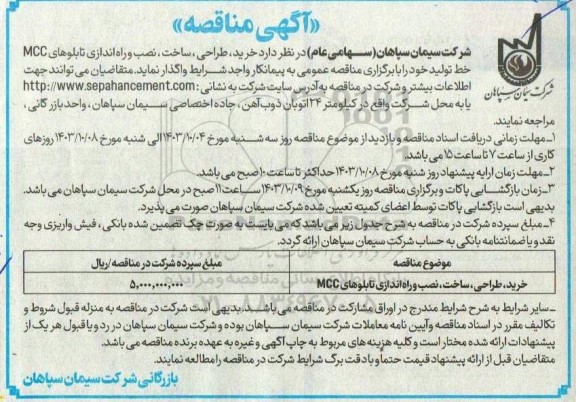 «آگهی مناقصه»
شرکت سیمان سپاهان
شرکت سیمان سپاهان (سهامی عام) در نظر دارد خرید، طراحی، ساخت، نصب و راه اندازی تابلوهای MCC
خط تولید خود را با برگزاری مناقصه عمومی به پیمانکار واجد شرایط واگذار نماید. متقاضیان می توانند جهت
اطلاعات بیشتر و شرکت در مناقصه به آدرس سایت شرکت به نشانی: http://www.sepahancement.com
یا به محل شرکت واقع در کیلومتر ۲۴ اتوبان ذوب آهن، جاده اختصاصی سیمان سپاهان، واحد بازرگانی،
مراجعه نمایند.
۱ـ مهلت زمانی دریافت اسناد مناقصه و بازدید از موضوع مناقصه روز سه شنبه مورخ ۱۴۰۳/۱۰/۰۴ الی شنبه مورخ ۱۴۰۳/۱۰/۰۸ روزهای
کاری از ساعت ۷ تا ساعت ۱۵ می باشد.
۲ـ مهلت زمان ارایه پیشنهاد روز شنبه مورخ ۱۴۰۳/۱۰/۰۸ حداکثر تا ساعت ۱۰ صبح می باشد.
۳ـ زمان بازگشایی پاکات و برگزاری مناقصه روز یکشنبه مورخ ۱۴۰۳/۱۰/۰۹ ساعت ۱۱ صبح در محل شرکت سیمان سپاهان می باشد.
بدیهی است بازگشایی پاکات توسط اعضای کمیته تعیین شده شرکت سیمان سپاهان صورت می پذیرد.
۴ـ مبلغ سپرده شرکت در مناقصه به شرح جدول زیر می باشد که می بایست به صورت چک تضمین شده بانکی، فیش واریزی وجه
نقد و یا ضمانتنامه بانکی به حساب شرکت سیمان سپاهان ارائه گردد.
موضوع مناقصه مبلغ سپرده شرکت در مناقصه/ریال
خرید، طراحی، ساخت، نصب و راه اندازی تابلوهای MCC ۵,۰۰۰,۰۰۰,۰۰۰
ـ سایر شرایط به شرح شرایط مندرج در اوراق مشارکت در مناقصه می باشد. بدیهی است شرکت در مناقصه به منزله قبول شروط و
تکالیف مقرر در اسناد مناقصه و آیین نامه معاملات شرکت سیمان سپاهان بوده و شرکت سیمان سپاهان در رد و یا قبول هر یک از
پیشنهادات ارائه شده مختار است و کلیه هزینه های مربوط به چاپ آگهی و غیره به عهده برنده مناقصه می باشد.
متقاضیان قبل از ارائه پیشنهاد قیمت حتماً و با دقت برگ شرایط شرکت در مناقصه را مطالعه نمایند.
بازرگانی شرکت سیمان سپاهان